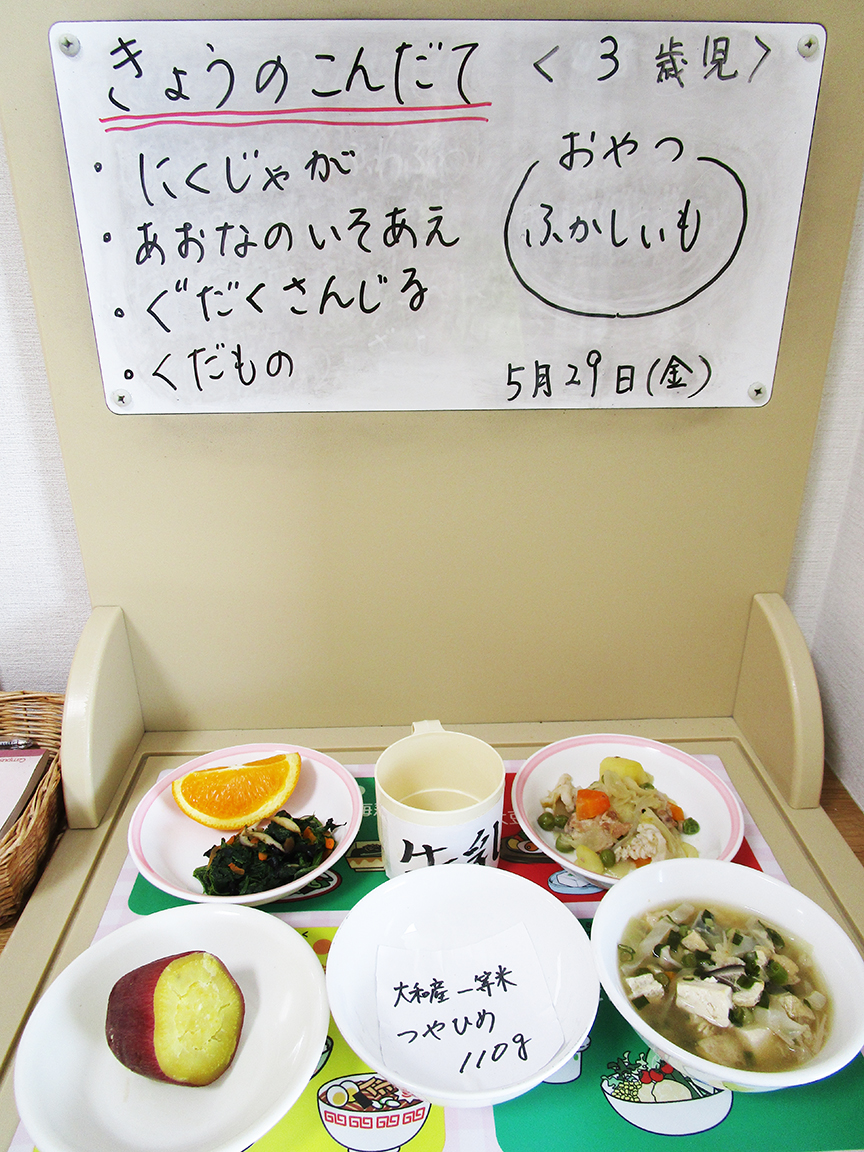 きょうのこんだて
〈3歳児〉
・にくじゃが
・あおなのいそあえ
・ぐだくさんじる
・くだもの
おやつ
ふかしいも
5月29日(金)
牛乳
大和産一等米
つやひめ
110g